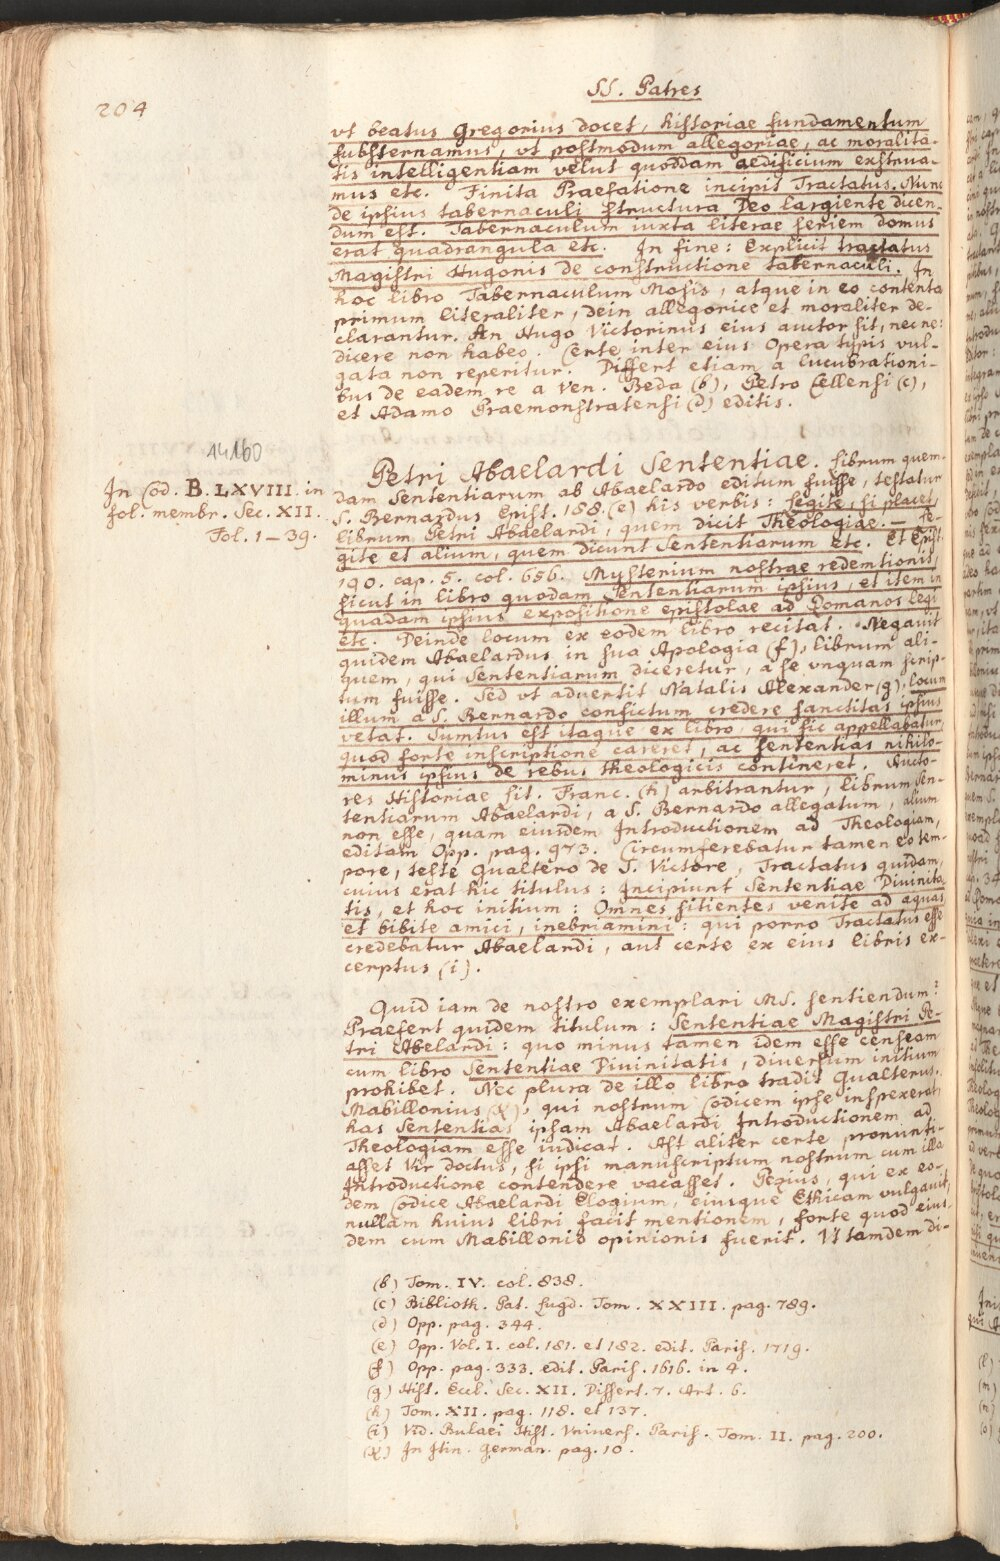 204
SS. Patres
vt beatus Gregorius docet, historiae fundamentum
substernamus, vt postmodum allegoriae, ac moralita-
tis intelligentiam velut quoddam aedificium exstrua-
mus etc. Finita Praefatione incipit Tractatus. Nunc
de ipsius tabernaculi structura Deo largiente dicen-
dum est. Tabernaculum iuxta literae seriem domus
erat quadrangula etc. In fine: Explicit tractatus
Magistri Hugonis de constructione tabernaculi. In
hoc libro Tabernaculum Mosis, atque in eo contenta
primum literaliter, dein allegorice et moraliter de-
clarantur. An Hugo Victorinus eius auctor sit, nec ne:
dicere non habeo. Certe inter eius Opera typis vul-
gata non reperitur. Differt etiam a lucubrationi-
bus de eadem re a Ven. Beda (b), Petro Cellensi (c),
et Adamo Praemonstratensi (d) editis.
14160
In Cod. B. LXVIII. in
fol. membr. Sec. XII.
Fol. 1–39.
Petri Abaelardi Sententiae. Librum quem-
dam Sententiarum ab Abaelardo editum fuisse, testatur
S. Bernardus Epist. 188. (e) his verbis: Legite, si placet,
librum Petri Abaelardi, quem dicit Theologiae. – Le-
gite et alium, quem dicunt Sententiarum etc. Et Epist.
190. cap. 5. col. 656. Mysterium nostrae redemtionis,
sicut in libro quodam Sententiarum ipsius, et item in
quadam ipsius expositione epistolae ad Romanos legi
etc. Deinde locum ex eodem libro recitat. Negauit
quidem Abaelardus in sua Apologia (f), librum ali-
quem, qui Sententiarum diceretur, a se vnquam scrip-
tum fuisse. Sed vt aduertit Natalis Alexander (g), locum
illum a S. Bernardo confictum credere sanctitas ipsius
vetat. Sumtus est itaque ex libro, qui sic appellabatur,
quod forte inscriptione careret, ac sententias nihilo-
minus ipsius de rebus theologicis contineret. Aucto-
res Historiae lit. Franc. (h) arbitrantur, librum Sen-
tentiarum Abaelardi, a S. Bernardo allegatum, alium
non esse, quam eiusdem Introductionem ad Theologiam,
editam Opp. pag. 973. Circumferebatur tamen eo tem-
pore, teste Gualtero de S. Victore, Tractatus quidam,
cuius erat hic titulus: Incipiunt Sententiae Diuinita-
tis, et hoc initium: Omnes sitientes venite ad aquas,
et bibite amici, inebriamini: qui porro Tractatus esse
credebatur Abaelardi, aut certe ex eius libris ex-
cerptus (i).
Quid iam de nostro exemplari MS. sentiendum?
Praefert quidem titulum: Sententiae Magistri Pe-
tri Abelardi: quo minus tamen idem esse censeam
cum libro Sententiae Diuinitatis, diuersum initium
prohibet. Nec plura de illo libro tradit Gualterus.
Mabillonius (k), qui nostrum Codicem ipse inspexerat,
has Sententias ipsam Abaelardi Introductionem ad
Theologiam esse iudicat. Ast aliter certe pronunti-
asset Vir doctus, si ipsi manuscriptum nostrum cum illa
Introductione contendere vacasset. Pezius, qui ex eo-
dem Codice Abaelardi Elogium, eiusque Ethicam vulgauit,
nullam huius libri facit mentionem, forte quod eius-
dem cum Mabillonio opinionis fuerit. Vt tamdem di-
(b) Tom. IV. col. 838.
(c) Biblioth. Pat. Lugd. Tom. XXIII. pag. 789.
(d) Opp. pag. 344.
(e) Opp. Vol. I. col. 181. et 182. edit. Paris. 1719.
(f) Opp. pag. 333. edit. Paris. 1616. in 4.
(g) Hist. Eccl. Sec. XII. Dissert. 7. Art. 6.
(h) Tom. XII. pag. 118. et 137.
(i) Vid. Bulaei Hist. Vniuers. Paris. Tom. II. pag. 200.
(k) In Itin. German. pag. 10.